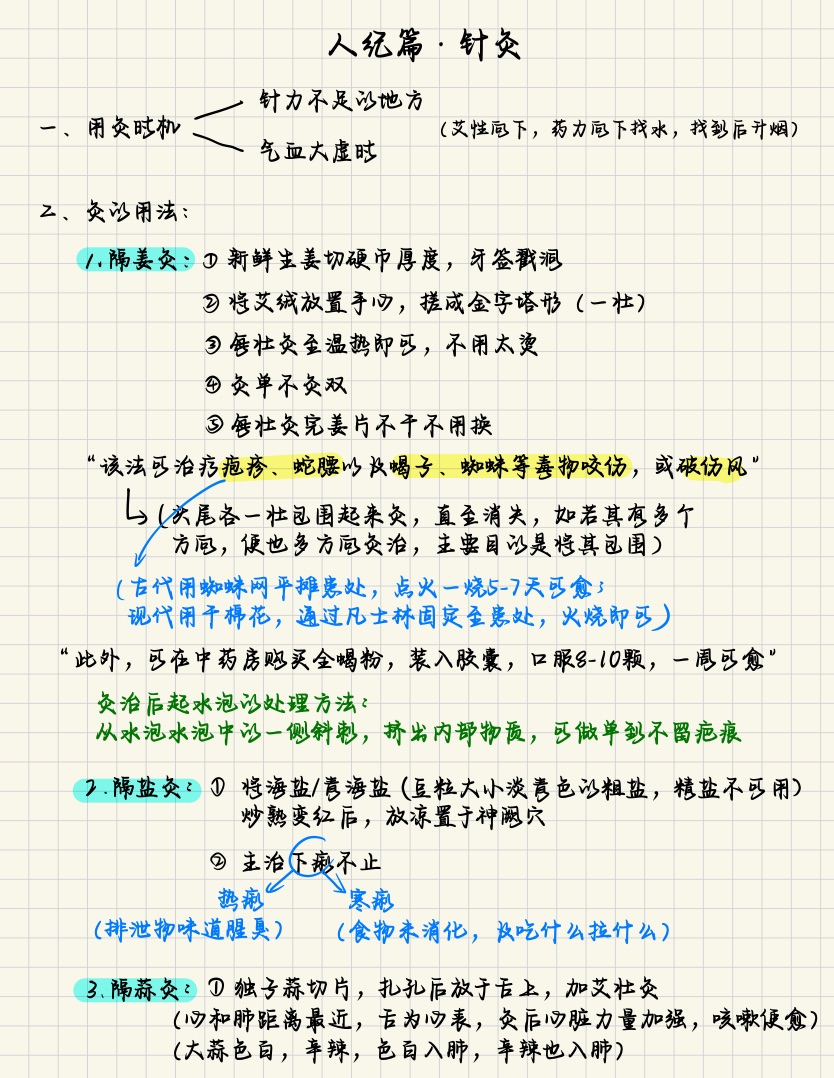 人纪篇·针灸
针力不足的地方
一、用灸时机
(艾性向下，药力向下找水，找到后升烟)
气血大虚时
二、灸的用法：
1.隔姜灸：① 新鲜生姜切硬币厚度，牙签戳洞
② 将艾绒放置手心，搓成金字塔形（一壮）
③ 每壮灸至温热即可，不用太烫
④ 灸单不灸双
⑤ 每壮灸完姜片不干不用换
“该法可治疗疱疹、蛇腰以及蝎子、蜘蛛等毒物咬伤，或破伤风”
(头尾各一壮包围起来灸，直至消失，如若其有多个
方向，便也多方向灸治，主要目的是将其包围)
(古代用蜘蛛网平摊患处，点火一烧5-7天可愈；
现代用干棉花，通过凡士林固定至患处，火烧即可)
“此外，可在中药房购买全蝎粉，装入胶囊，口服8-10颗，一周可愈”
灸治后起水泡的处理方法：
从水泡水泡中的一侧斜刺，挤出内部物质，可做单到不留疤痕
2.隔盐灸：① 将海盐/青海盐（豆粒大小淡青色的粗盐，精盐不可用）
炒熟变红后，放凉置于神阙穴
② 主治下痢不止
热痢
寒痢
(排泄物味道腥臭)
(食物未消化，及吃什么拉什么)
3.隔蒜灸：① 独子蒜切片，扎孔后放于舌上，加艾壮灸
(心和肺距离最近，舌为心表，灸后心脏力量加强，咳嗽便愈)
(大蒜色白，辛辣，色白入肺，辛辣也入肺)